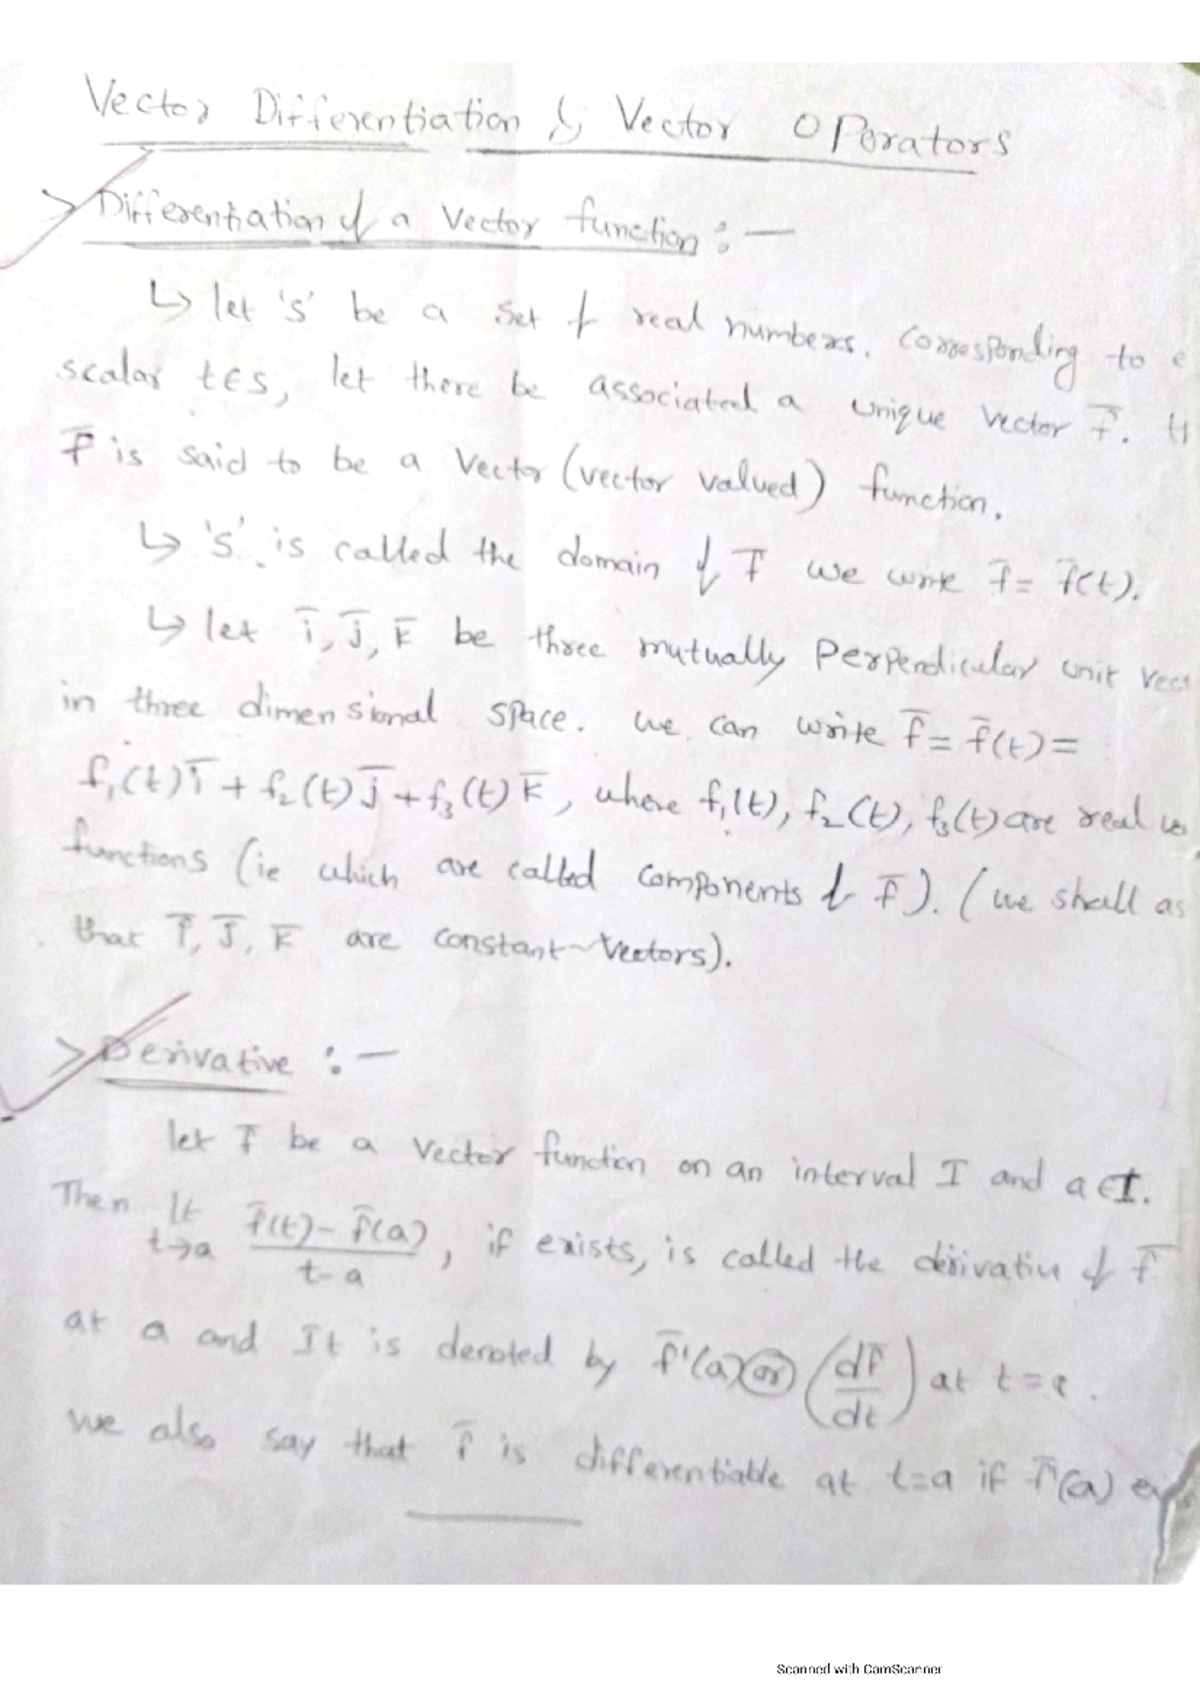 Vector Differentiation & Vector Operators
> Differentiation of a Vector function :-
↳ let 's' be a set of real numbers. Corresponding to
scalar t∈s, let there be associated a unique vector f̄.
f̄ is said to be a Vector (vector valued) function.
↳ 's' is called the domain of f̄ we write f̄ = f̄(t).
↳ let ī, j̄, k̄ be three mutually perpendicular unit vect
in three dimensional space. we can write f̄ = f̄(t) =
f₁(t)ī + f₂(t)j̄ + f₃(t)k̄, where f₁(t), f₂(t), f₃(t) are real
functions (ie which are called components of f̄). (we shall as
that ī, j̄, k̄ are constant vectors).
> Derivative :-
let f̄ be a vector function on an interval I and a∈I.
Then lt t→a (f̄(t) - f̄(a))/(t-a), if exists, is called the derivative of f̄
at a and It is denoted by f̄'(a) or (df̄/dt) at t=a.
we also say that f̄ is differentiable at t=a if f̄'(a) ex
Scanned with CamScanner